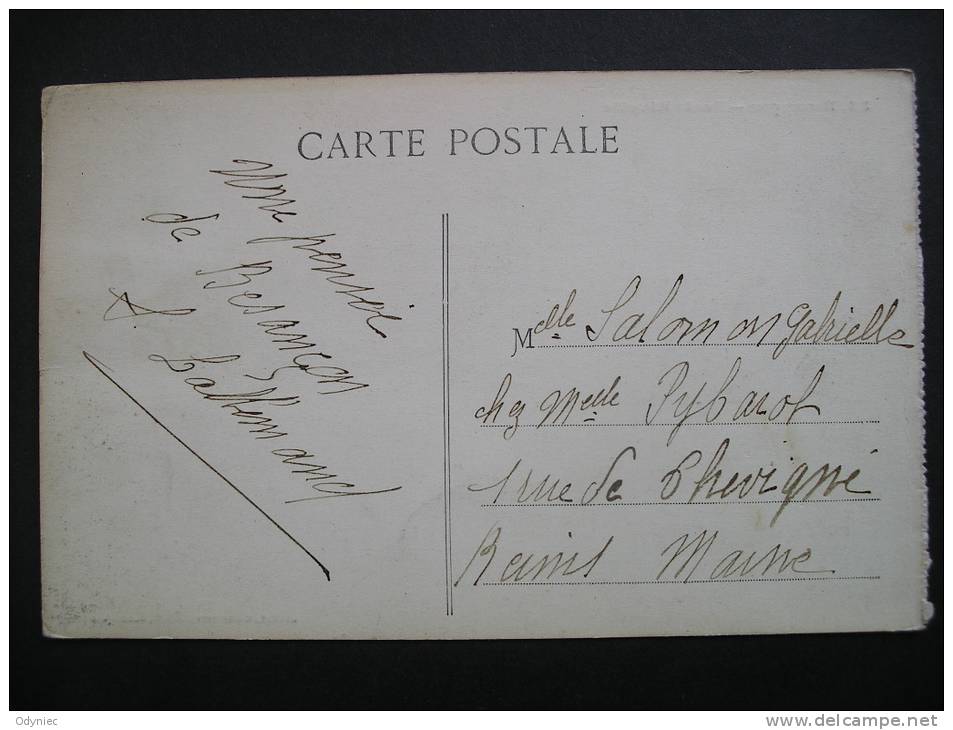 CARTE POSTALE
Une pensée
de Besançon
L. Lallemand
Melle Salomon Gabrielle
chez Melle Pybarot
1 rue de Thevigné
Reims Marne
Odyniec
www.delcampe.net